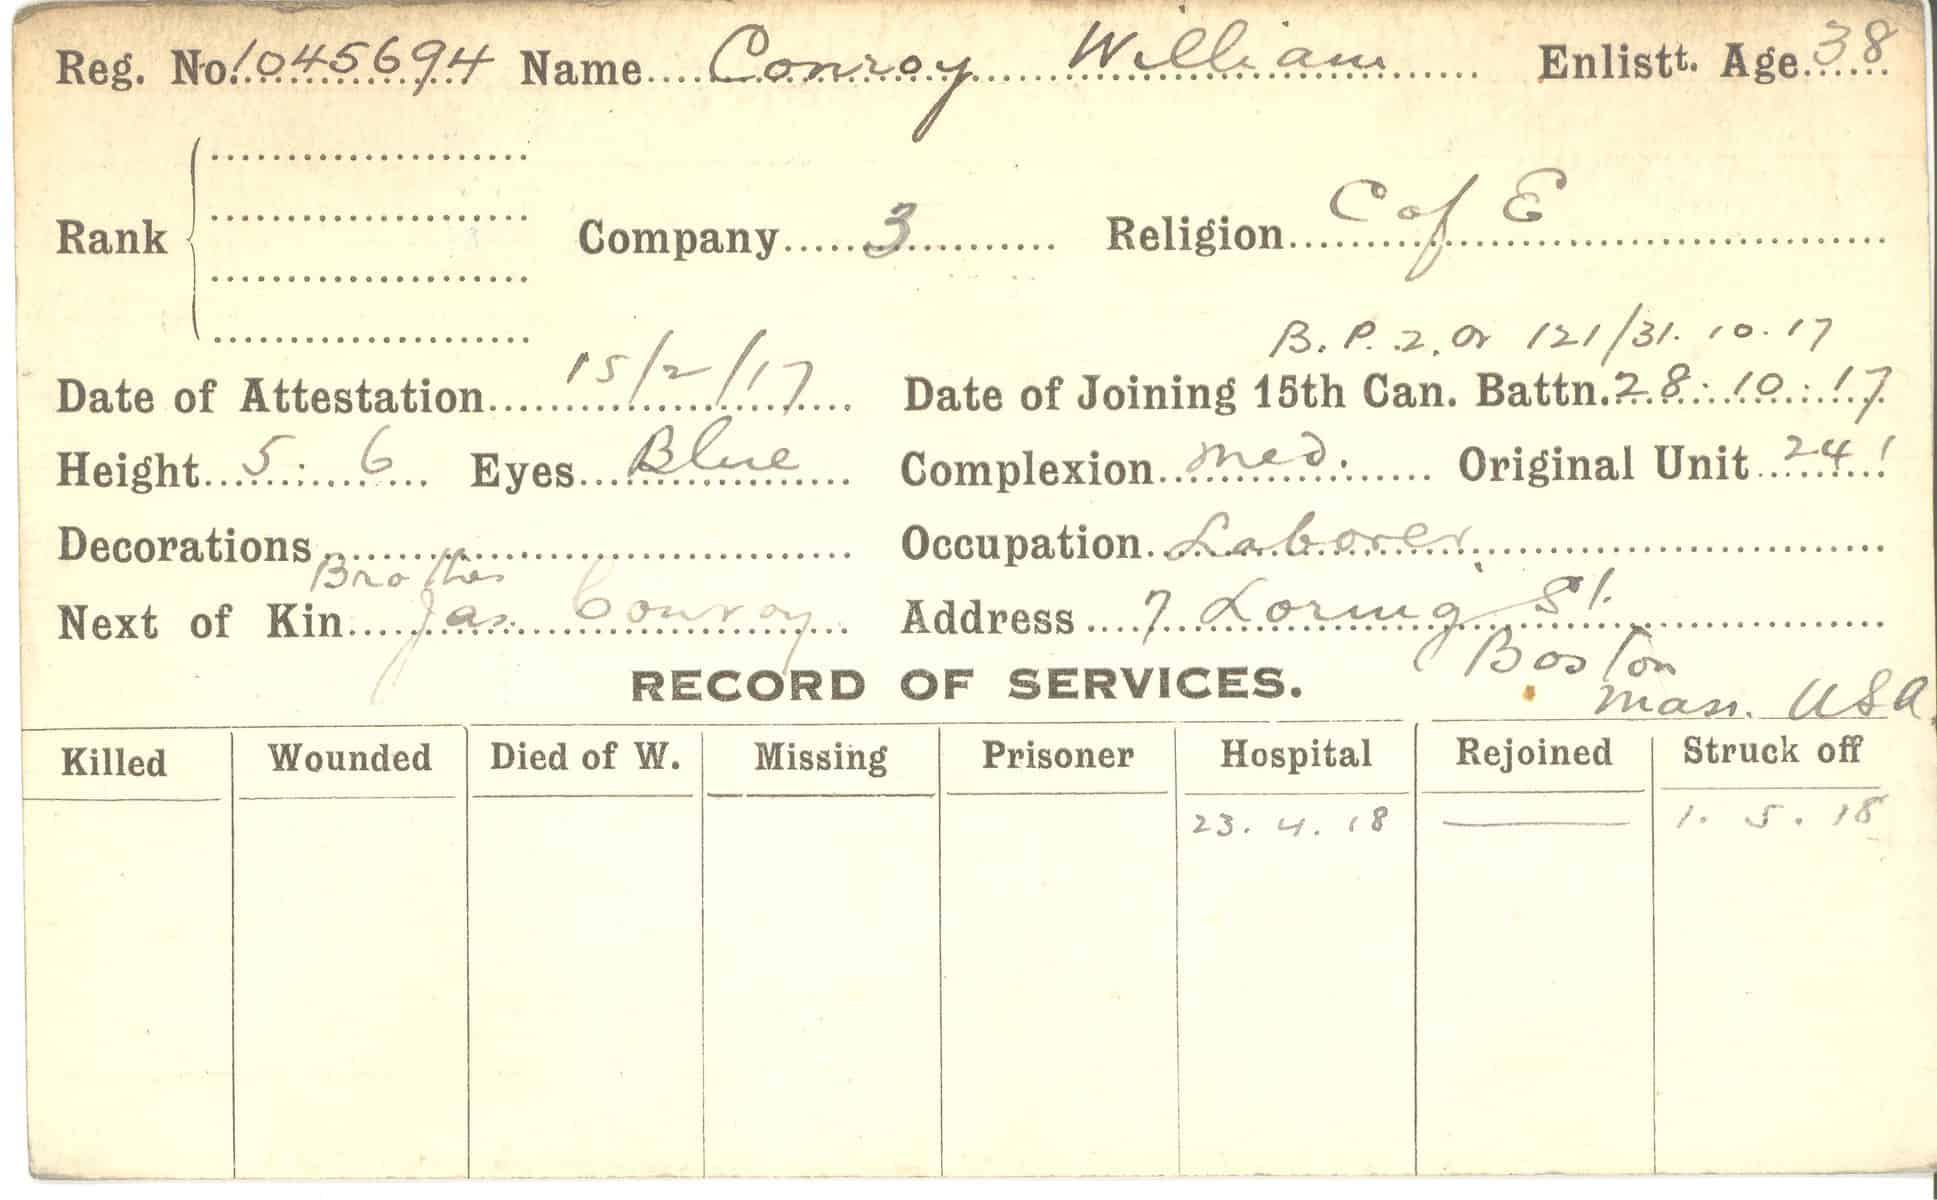 Reg. No. 1045694 Name Conroy William Enlistt. Age 38
Rank Company 3 Religion C of E
B. P. 2. Or 121/31. 10. 17
Date of Attestation 15/2/17 Date of Joining 15th Can. Battn. 28:10:17
Height 5:6 Eyes Blue Complexion Med: Original Unit 241
Decorations Occupation Laborer
Brother
Next of Kin Jas. Conroy Address 7 Loring St.
Boston
Mass. USA.
RECORD OF SERVICES.
Killed Wounded Died of W. Missing Prisoner Hospital Rejoined Struck off
23. 4. 18 — 1. 5. 18